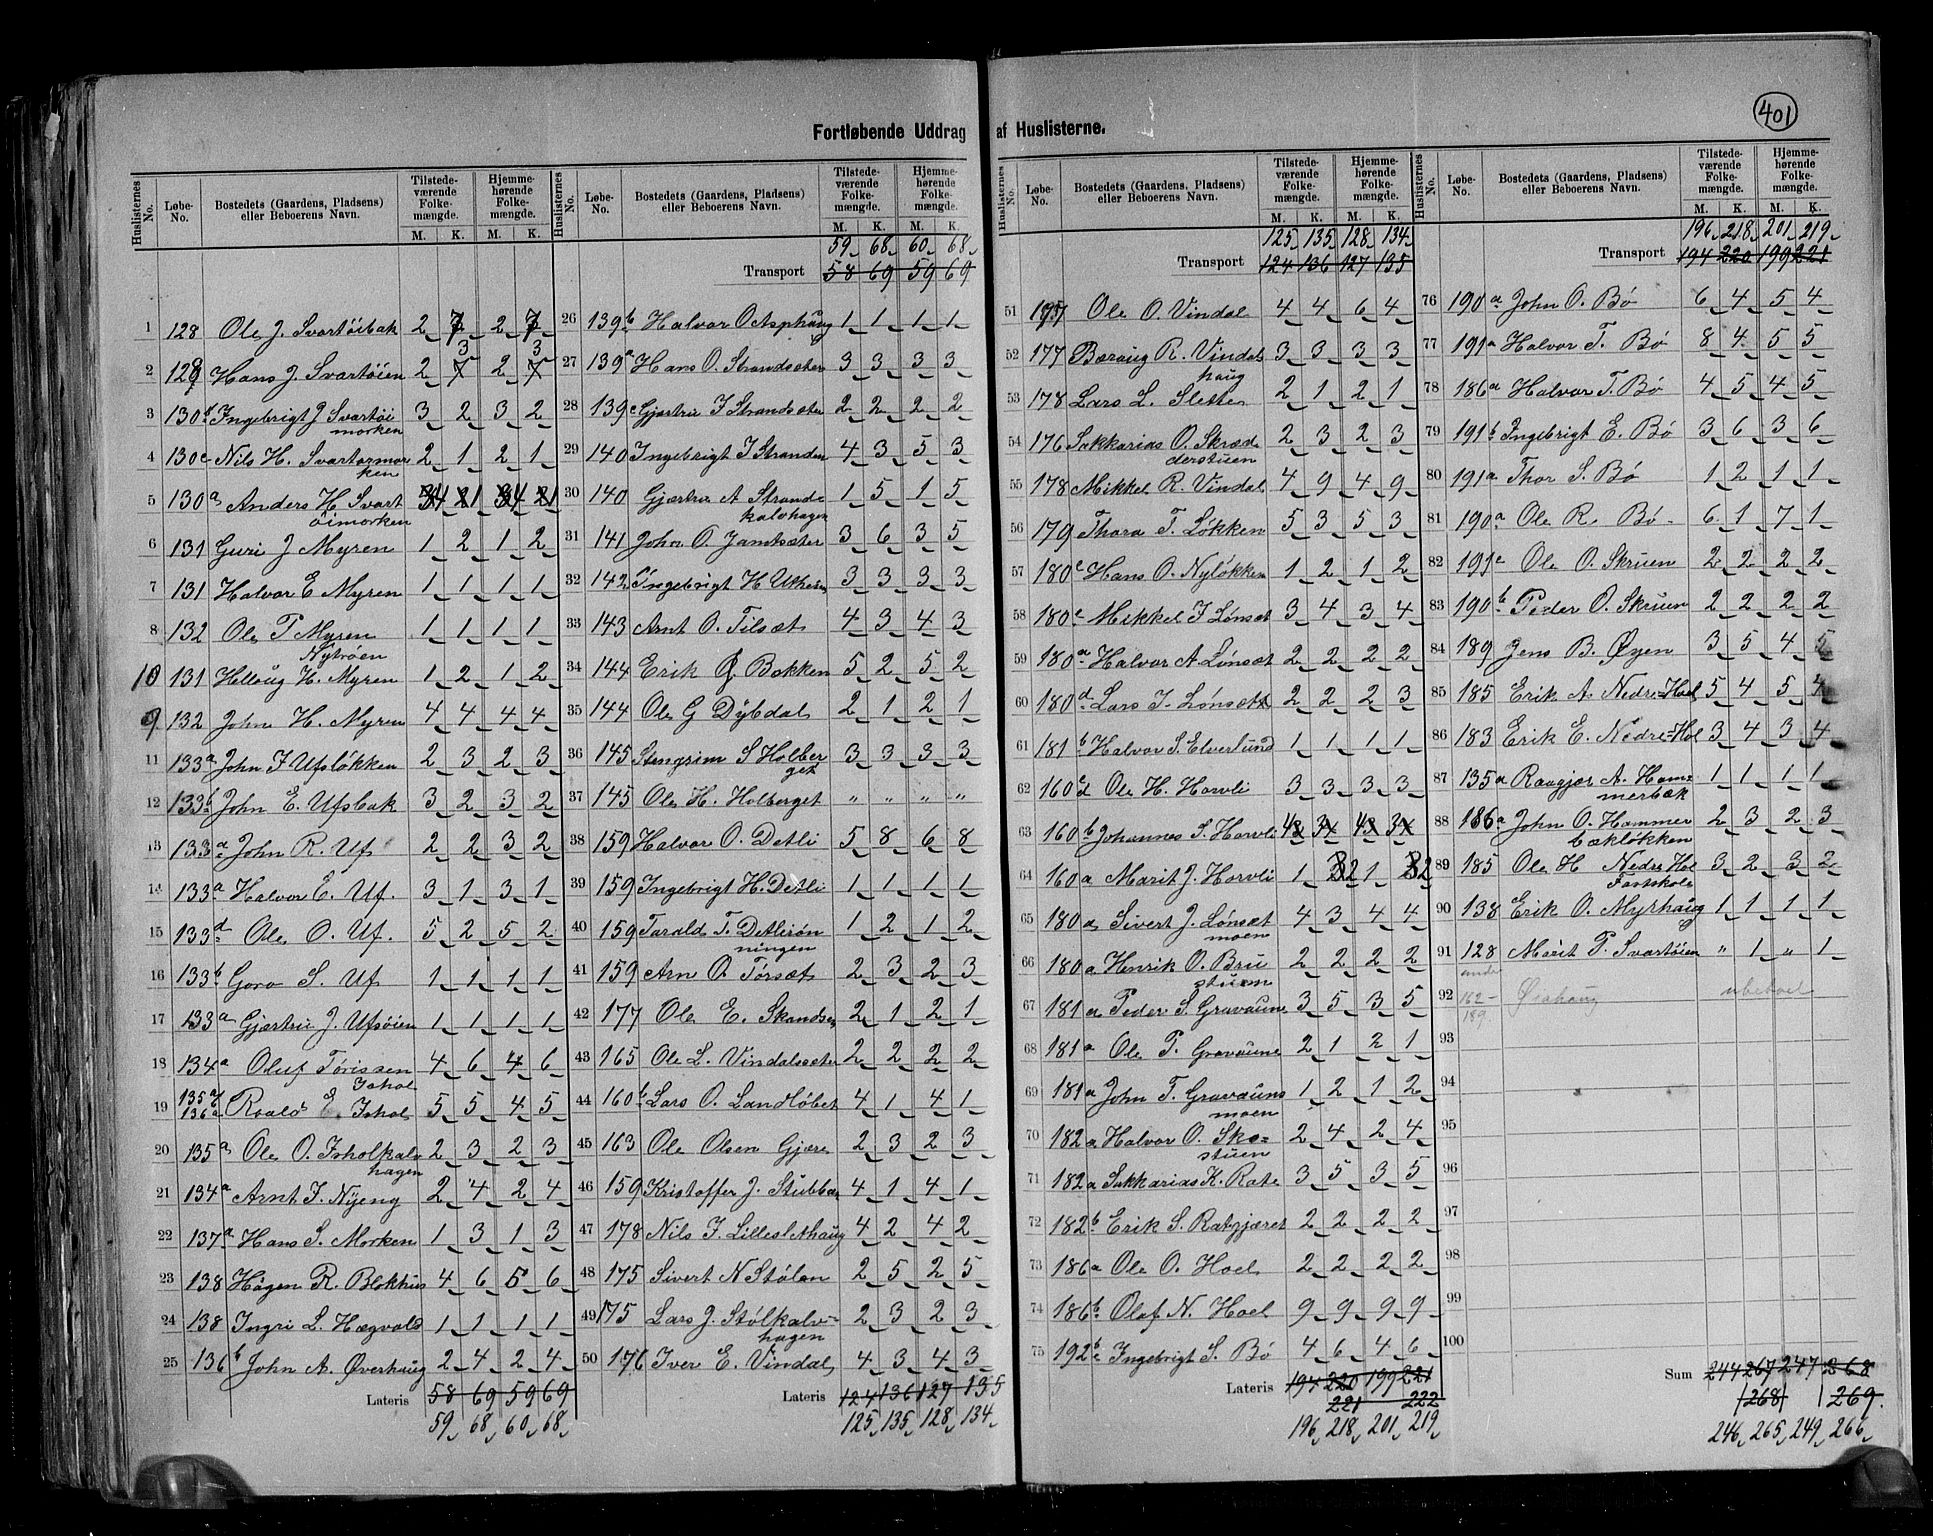 401
Fortløbende Uddrag af Huslisterne.
Huslisternes No. Løbe-No. Bostedets (Gaardens, Pladsens) eller Beboerens Navn. Tilstedeværende Folkemængde. M. K. Hjemmehørende Folkemængde. M. K.
1 128 Ole J. Svartöibak 2 7 2 7
2 129 Hans J. Svartöien 2 3 2 3
3 130 Ingebrigt J Svartöimorken 3 2 3 2
4 130c Nils H. Svartormorken 2 1 2 1
5 130a Anders H. Svartöimorken 4 1 4 1
6 131 Guri J Myren 1 2 1 2
7 131 Halvor E Myren 1 1 1 1
8 132 Ole P Myren Nytröen 1 1 1 1
10 131 Helloug H. Myren 1 2 1 2
9 132 John H. Myren 4 4 4 4
11 133a John J Ufsløkken 2 3 2 3
12 133b John E. Ufsbak 3 2 3 2
13 133a John R. Uf 2 2 3 2
14 133a Halvor E. Uf. 3 1 3 1
15 133d Ole O. Uf. 5 2 5 2
16 133b Goro S. Uf 1 1 1 1
17 133a Gjertru J. Ufsöien 1 1 1 1
18 134a Oluf Törissen Ishol 4 6 4 6
19 135a 136a Roald E. Ishol 5 5 4 5
20 135a Ole O. Isholkalvhagen 2 3 2 3
21 134a Arnt J. Nyeng 2 4 2 4
22 137a Hans S. Morken 1 3 1 3
23 138 Hågen R. Blokhus 4 6 5 6
24 138 Ingri L. Hægvold 1 1 1 1
25 136b John A. Øverhaug 2 4 2 4
Lateris 58 69 59 69
59 68 60 68
Huslisternes No. Løbe-No. Bostedets (Gaardens, Pladsens) eller Beboerens Navn. Tilstedeværende Folkemængde. M. K. Hjemmehørende Folkemængde. M. K.
59 68 60 68
Transport 58 69 59 69
26 139b Halvor O Asphaug 1 1 1 1
27 139a Hans O. Strandsæter 3 3 3 3
28 139c Gjertru J Strandsæter 2 2 2 2
29 140 Ingebrigt J Stranden 4 3 5 3
30 140 Gjertru A Strandkalvhagen 1 5 1 5
31 141 John O Jamtsæter 3 6 3 5
32 142 Ingebrigt H. 3 3 3 3
33 143 Arnt O. Tilsæt 4 3 4 3
34 144 Erik Bakken 5 2 5 2
35 144 Ole G Dybdal 2 1 2 1
36 145 Stengrim S Holberget 3 3 3 3
37 145 Ole H. Holberget " " " "
38 159 Halvor O. Detli 5 8 6 8
39 159 Ingebrigt H. Detli 1 1 1 1
40 159 Tarald T. Detlirönningen 1 2 1 2
41 159 Arn O Törsæt 2 3 2 3
42 177 Ole E. Skandsen 2 1 2 1
43 165 Ole L. Vindalsæter 2 2 2 2
44 160b Lars O. Landlöbet 4 1 4 1
45 163 Ole Olsen Gjære 2 3 2 3
46 159 Kristoffer J. Stubban 4 1 4 1
47 178 Nils J. Lilleslethaug 4 2 4 2
48 175 Sivert N Stölan 2 5 2 5
49 175 Lars J. Stölkalvhagen 2 3 2 3
50 176 Iver E. Vindal 4 3 4 3
Lateris 124 136 127 135
125 135 128 134
Huslisternes No. Løbe-No. Bostedets (Gaardens, Pladsens) eller Beboerens Navn. Tilstedeværende Folkemængde. M. K. Hjemmehørende Folkemængde. M. K.
125 135 128 134
Transport 124 136 127 135
51 Ole O. Vindal 4 4 6 4
52 177 Beraug R. Vindalhaug 3 3 3 3
53 178 Lars L. Sletten 2 1 2 1
54 176 Sakkarias O. Skrædderstuen 2 3 2 3
55 178 Mikkel R. Vindal 4 9 4 9
56 179 Thora T. Løkken 5 3 5 3
57 180c Hans O. Nyløkken 1 2 1 2
58 180c Mikkel J Lønset 3 4 3 4
59 180a Halvor A Lønset 2 2 2 2
60 180d Lars J. Lønset 2 2 2 3
61 181b Halvor S. Elverlund 1 1 1 1
62 160 Ole H. Horvli 3 3 3 3
63 160b Johannes J. Horvli
64 160a Marit J. Horvli 1 2 1 2
65 180a Sivert J. Lønsetmoen 4 3 4 4
66 180a Henrik O. Brustuen 2 2 2 2
67 181a Peder S. Gravaune 3 5 3 5
68 181a Ole P. Gravaune 2 1 2 1
69 181a John T. Gravaunsmoen 1 2 1 2
70 182a Halvor O. Skostuen 2 4 2 4
71 182a Sakkarias K. Rate 3 5 3 5
72 182b Erik S. Ratgjæret 2 2 2 2
73 186a Ole O. Hoel 2 2 2 2
74 186b Olaf N. Hoel 9 9 9 9
75 192b Ingebrigt S. Bø 4 6 4 6
Lateris 194 220 199 221
221 222
196 218 201 219
Huslisternes No. Løbe-No. Bostedets (Gaardens, Pladsens) eller Beboerens Navn. Tilstedeværende Folkemængde. M. K. Hjemmehørende Folkemængde. M. K.
196 218 201 219
Transport 194 220 199 221
76 190a John O. Bø 6 4 5 4
77 191a Halvor T. Bø 8 4 5 5
78 186a Halvor T. Bø 4 5 4 5
79 191b Ingebrigt E. Bø 3 6 3 6
80 191a Thor S. Bø 1 2 1 1
81 190a Ole R. Bø 6 1 7 1
82 191c Ole O. Skruen 2 2 2 2
83 190b Peder O. Skruen 2 2 2 2
84 189 Jens B. Øyen 3 5 4 5
85 185 Erik A. Nedre=Hoel 5 4 5 4
86 183 Erik E. Nedre=Hol 3 4 3 4
87 135a Raagjær A. Hammerbæk 1 1 1 1
88 186a John O. Hammerbækløkken 2 3 2 3
89 185 Ole H Nedre Hol Fastskole 3 2 3 2
90 138 Erik O. Myrhaug 1 1 1 1
91 128 Marit P. Svartöien " 1 " 1
92 under 162-189 ubeboet
93
94
95
96
97
98
99
100
Sum 244 267 247 268
268 269
246 265 249 266